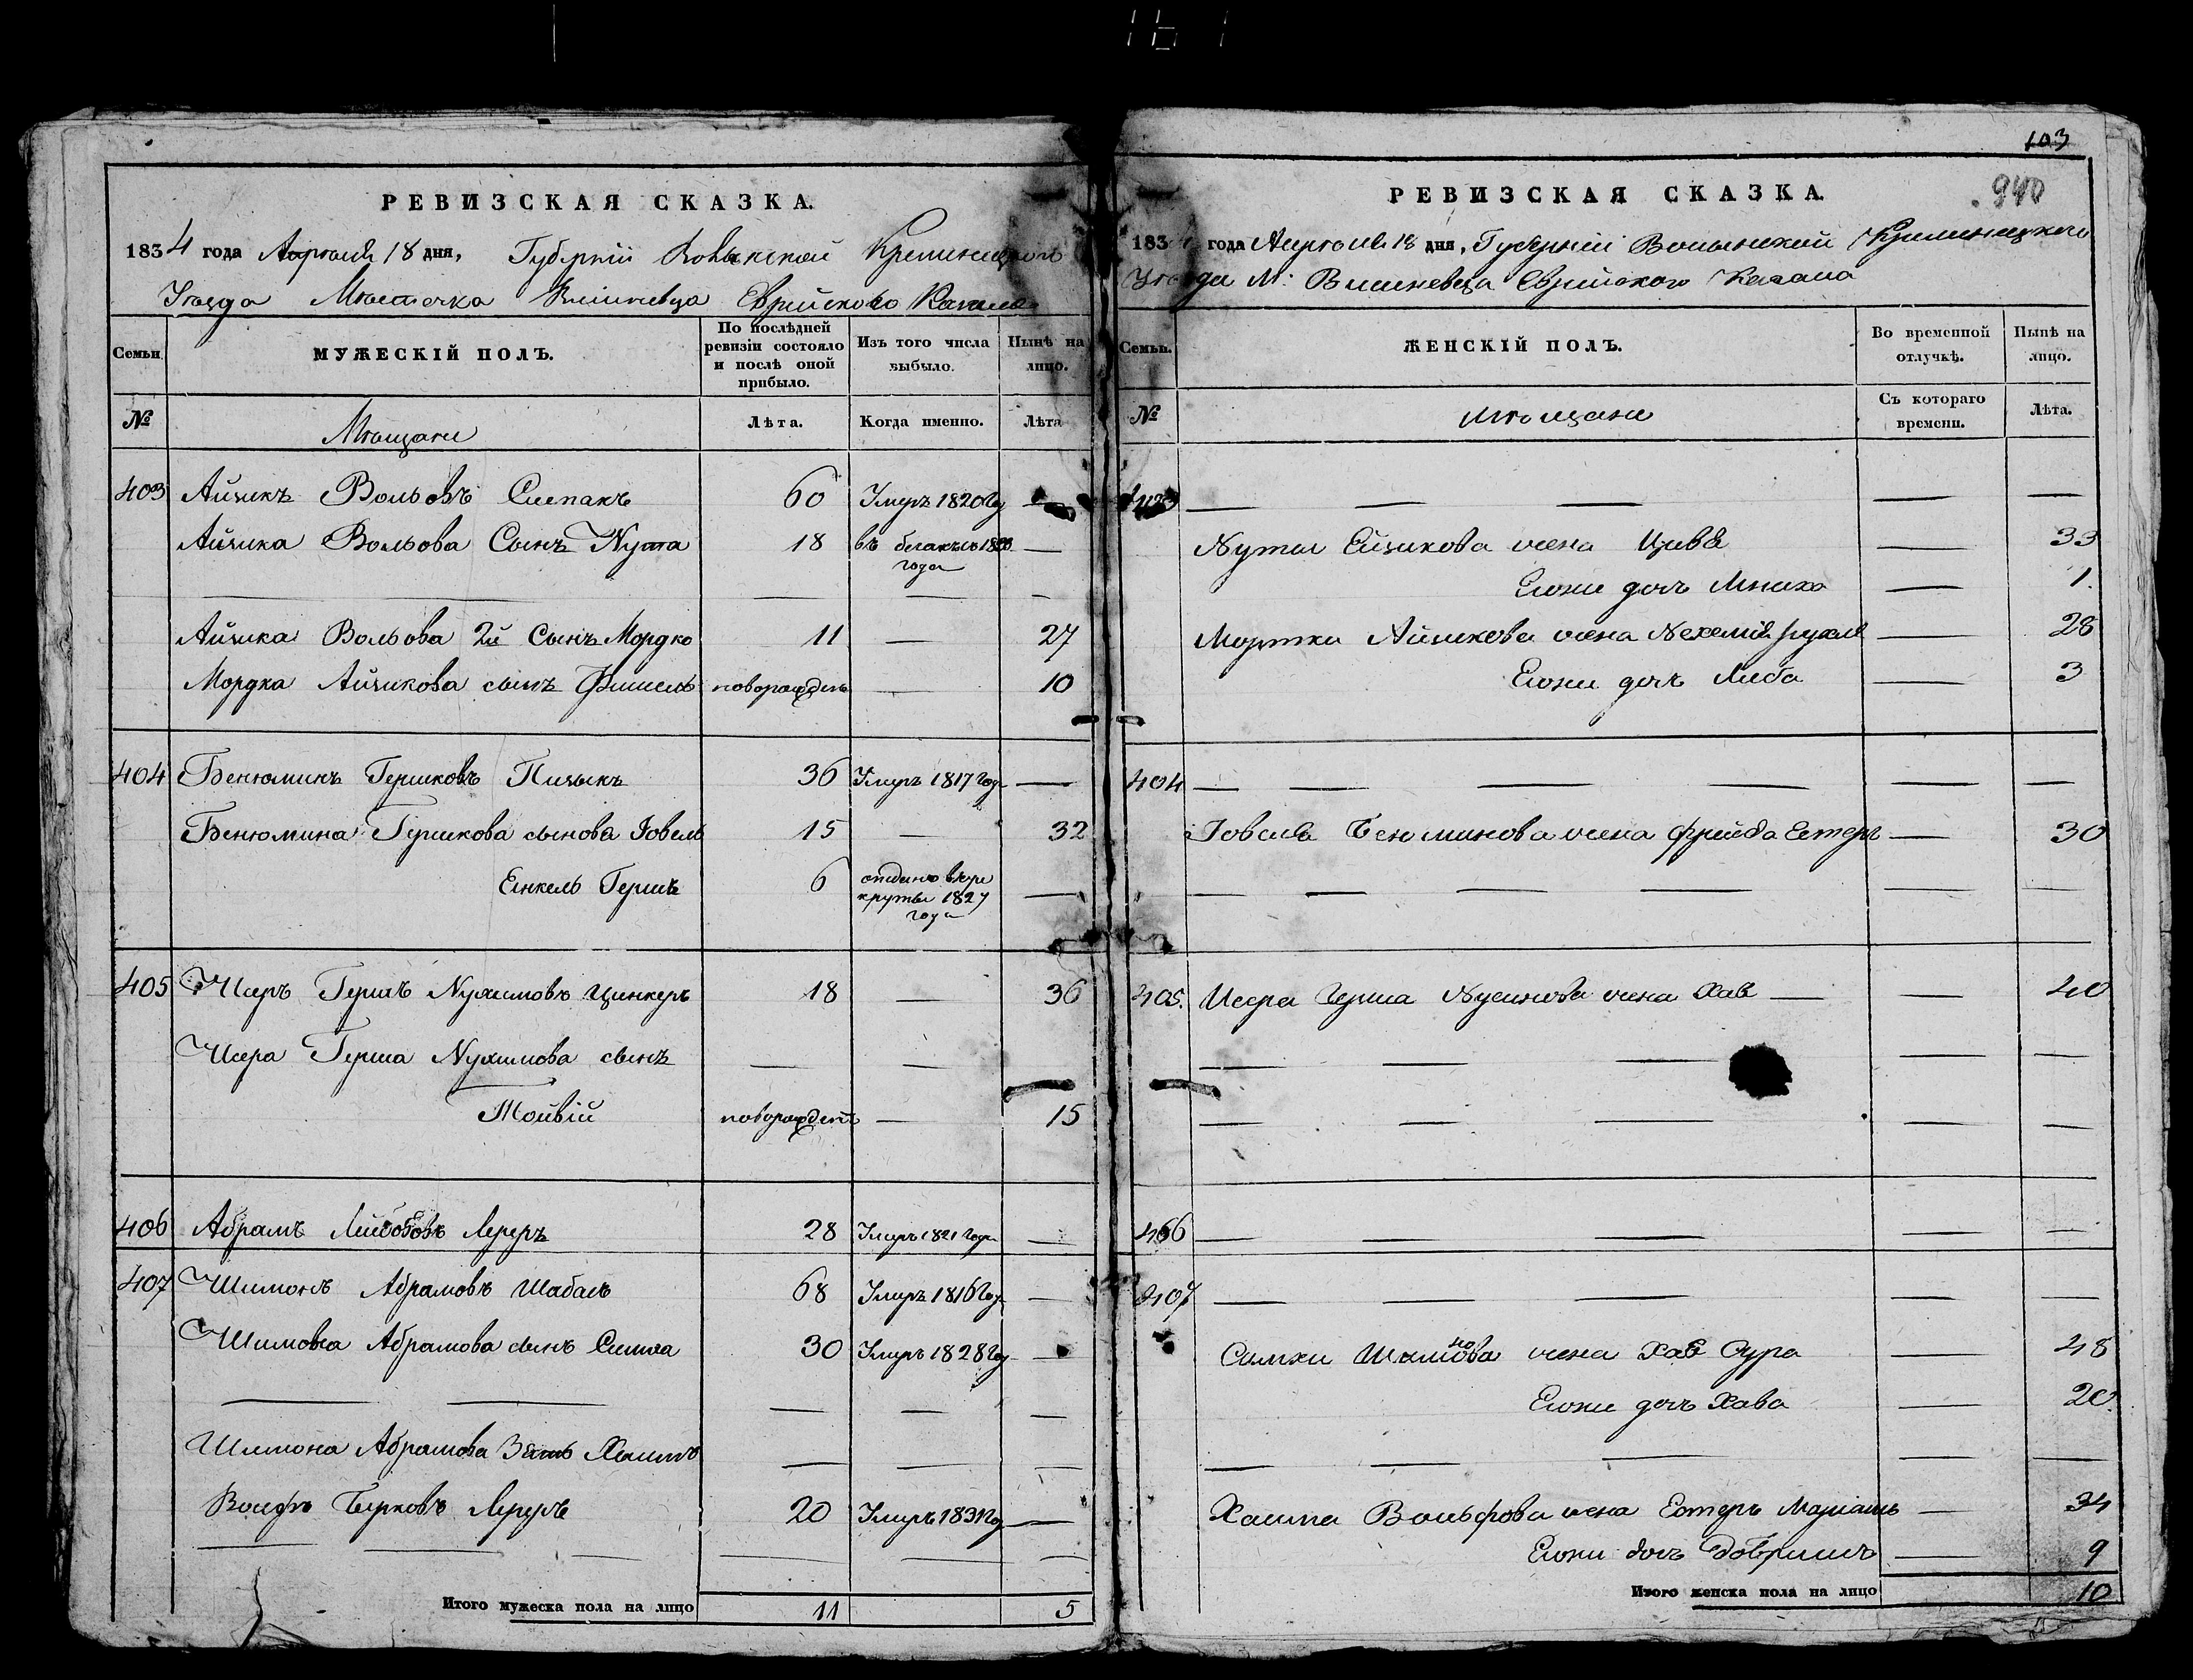 103
940
РЕВИЗСКАЯ СКАЗКА.
1834 года Апреля 18 дня, Губерніи Волынской Кременецкого
Уезда Местечка Вишневца Еврейского Кагала
Семьи.
МУЖЕСКІЙ ПОЛЪ.
По послѣдней ревизіи состояло и послѣ оной прибыло.
Изъ того числа выбыло.
Нынѣ на лицо.
№
Мещане
Лѣта.
Когда именно.
Лѣта
403 Айзикъ Вольовъ Слепакъ 60 Умеръ 1820 го —
Айзика Вольова Сынъ Нута 18 въ бегахъ съ года —
Айзика Вольова 2й Сынъ Мордко 11 — 27
Мордка Айзикова сынъ Фишель новорожденъ — 10
404 Бенюминъ Гершковъ 36 Умеръ 1817 год —
Бенюмина Гершкова сыновья Іовель 15 — 32
Еинкель Гершъ 6 отданъ в рекруты 1827 года —
405 Исеръ Гершъ Нухимовъ Цинкеръ 18 — 36
Исера Герша Нухимова сынъ — —
Тойвій новорожденъ — 15
406 Абрамъ Лейбовъ Лереръ 28 Умеръ 1821 года —
407 Шимонъ Абрамовъ Шабасъ 68 Умеръ 1816 год —
Шимона Абрамова сынъ Симха 30 Умеръ 1828 год —
Шимона Абрамова Зять Хаимъ — — —
Вольфъ Берковъ Лереръ 20 Умеръ 1831 го —
Итого мужеска пола на лицо 11 5
РЕВИЗСКАЯ СКАЗКА.
183 года Апреля 18 дня, Губерніи Волынской Кременецкого
Уезда М: Вишневца Еврейского Кагала
Семьи.
ЖЕНСКІЙ ПОЛЪ.
Во временной отлучкѣ.
Нынѣ на лицо.
№
мещане
Съ котораго времени.
Лѣта.
403 — — — — —
Нуты Ейзикова жена Цивя — 33
Еюжи дочъ — 1.
Мортки Айзикова жена Нехемія Рухля — 28
Еюжи дочъ Либа — 3
404 — — — — — —
Іовеля Бенюминова жена Фрейда Естеръ — 30
— — — — — —
405. Исера Герша жена Хая — — 40
— — — —
— — — — —
406 — — — — — —
407 — — — — —
Симхи Шимонова жена Хая Сура — 48
Еюжи дочъ Хава — 20
— — — — —
Хаима Вольфова жена Естеръ Маріамъ — 34
Еюжи дочъ Добришъ — 9
Итого женска пола на лицо 10